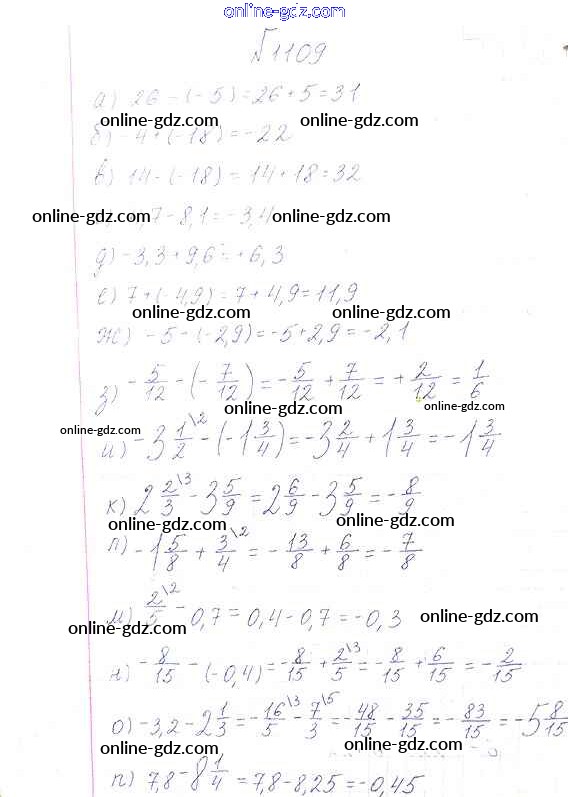 online-gdz.com
№1109
а) 26-(-5)=26+5=31
online-gdz.com online-gdz.com
б) -4+(-18)=-22
в) 14-(-18)=14+18=32
online-gdz.com ,7-8,1=-3,4 online-gdz.com
д) -3,3+9,6=+6,3
е) 7+(-4,9)=7+4,9=11,9
online-gdz.com online-gdz.com
ж) -5-(-2,9)=-5+2,9=-2,1
з) -5/12-(-7/12)=-5/12+7/12=+2/12=1/6
online-gdz.com online-gdz.com
online-gdz.com
и) -3 1/2\2-(-1 3/4)=-3 2/4+1 3/4=-1 3/4
online-gdz.com
к) 2 2/3\3-3 5/9=2 6/9-3 5/9=-8/9
online-gdz.com online-gdz.com
л) -1 5/8+3/4\2=-13/8+6/8=-7/8
online-gdz.com
м) 2/5\2-0,7=0,4-0,7=-0,3 online-gdz.com
online-gdz.com
н) -8/15-(-0,4)=-8/15+2/5\3=-8/15+6/15=-2/15
online-gdz.com online-gdz.com
о) -3,2-2 1/3=-16/5\3-7/3\5=-48/15-35/15=-83/15=-5 8/15
online-gdz.com online-gdz.com
п) 7,8-8 1/4=7,8-8,25=-0,45